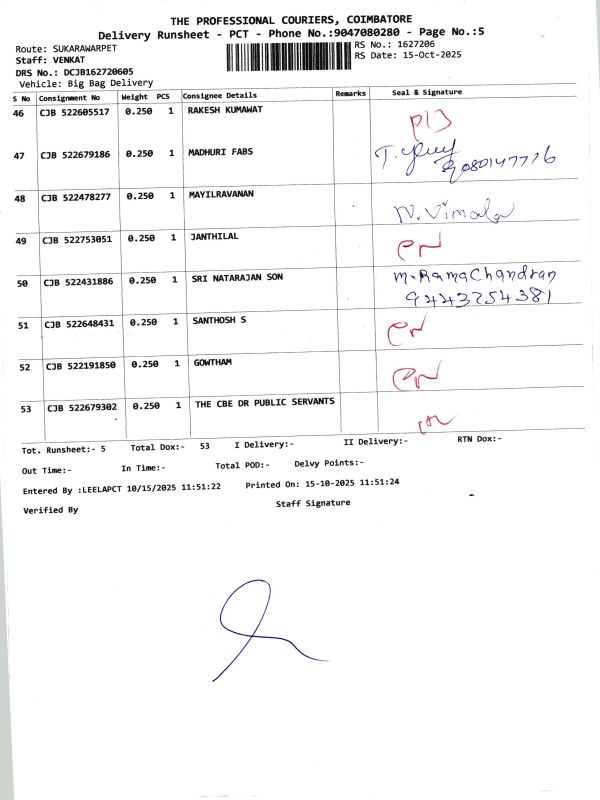 THE PROFESSIONAL COURIERS, COIMBATORE
Delivery Runsheet - PCT - Phone No.:9047080280 - Page No.:5
Route: SUKARAWARPET
RS No.: 1627206
Staff: VENKAT
RS Date: 15-Oct-2025
DRS No.: DCJB162720605
Vehicle: Big Bag Delivery
S No Consignment No Weight PCS Consignee Details Remarks Seal & Signature
46 CJB 522605517 0.250 1 RAKESH KUMAWAT
47 CJB 522679186 0.250 1 MADHURI FABS
48 CJB 522478277 0.250 1 MAYILRAVANAN N. Vimala
49 CJB 522753051 0.250 1 JANTHILAL
50 CJB 522431886 0.250 1 SRI NATARAJAN SON M. RamaChandran
9443254381
51 CJB 522648431 0.250 1 SANTHOSH S
52 CJB 522191850 0.250 1 GOWTHAM
53 CJB 522679302 0.250 1 THE CBE DR PUBLIC SERVANTS
Tot. Runsheet:- 5 Total Dox:- 53 I Delivery:- II Delivery:- RTN Dox:-
Out Time:- In Time:- Total POD:- Delvy Points:-
Entered By :LEELAPCT 10/15/2025 11:51:22 Printed On: 15-10-2025 11:51:24
Verified By Staff Signature